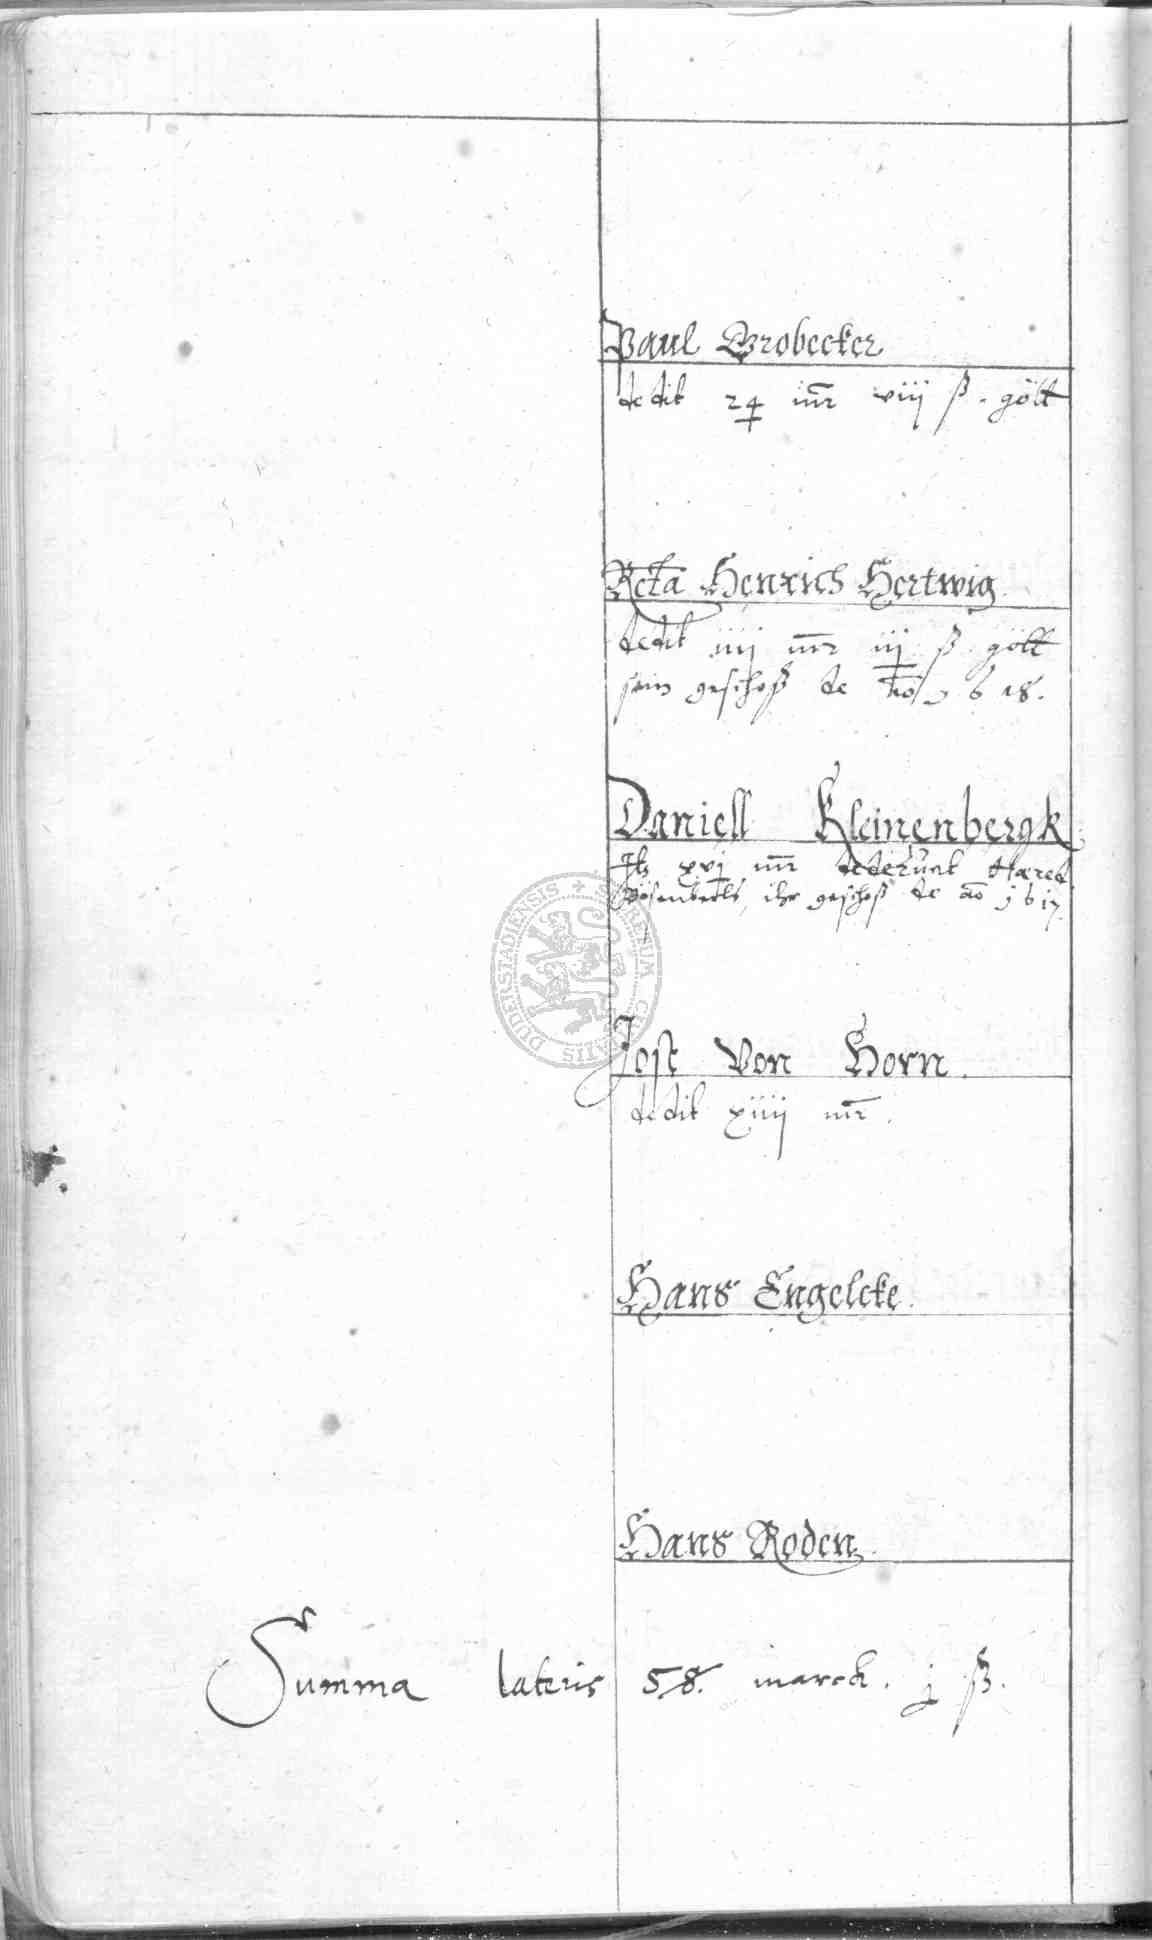 Paul Brobecker
dedit 24 mr viij ß. gött
Rcta Henrich Hertwig
dedit iiij mr iij ß gött
sein geschoß de ao 1618.
Daniell Kleinenbergk
It xvj mr dederunt Hæred
ihr geschoß de ao j617.
SECRETUM CIVITATIS DUDERSTADIENSIS
Jost Von Horn.
dedit xiiij mr.
Hans Engelcke.
Hans Roden.
Summa lateris 58. marck. j ß.